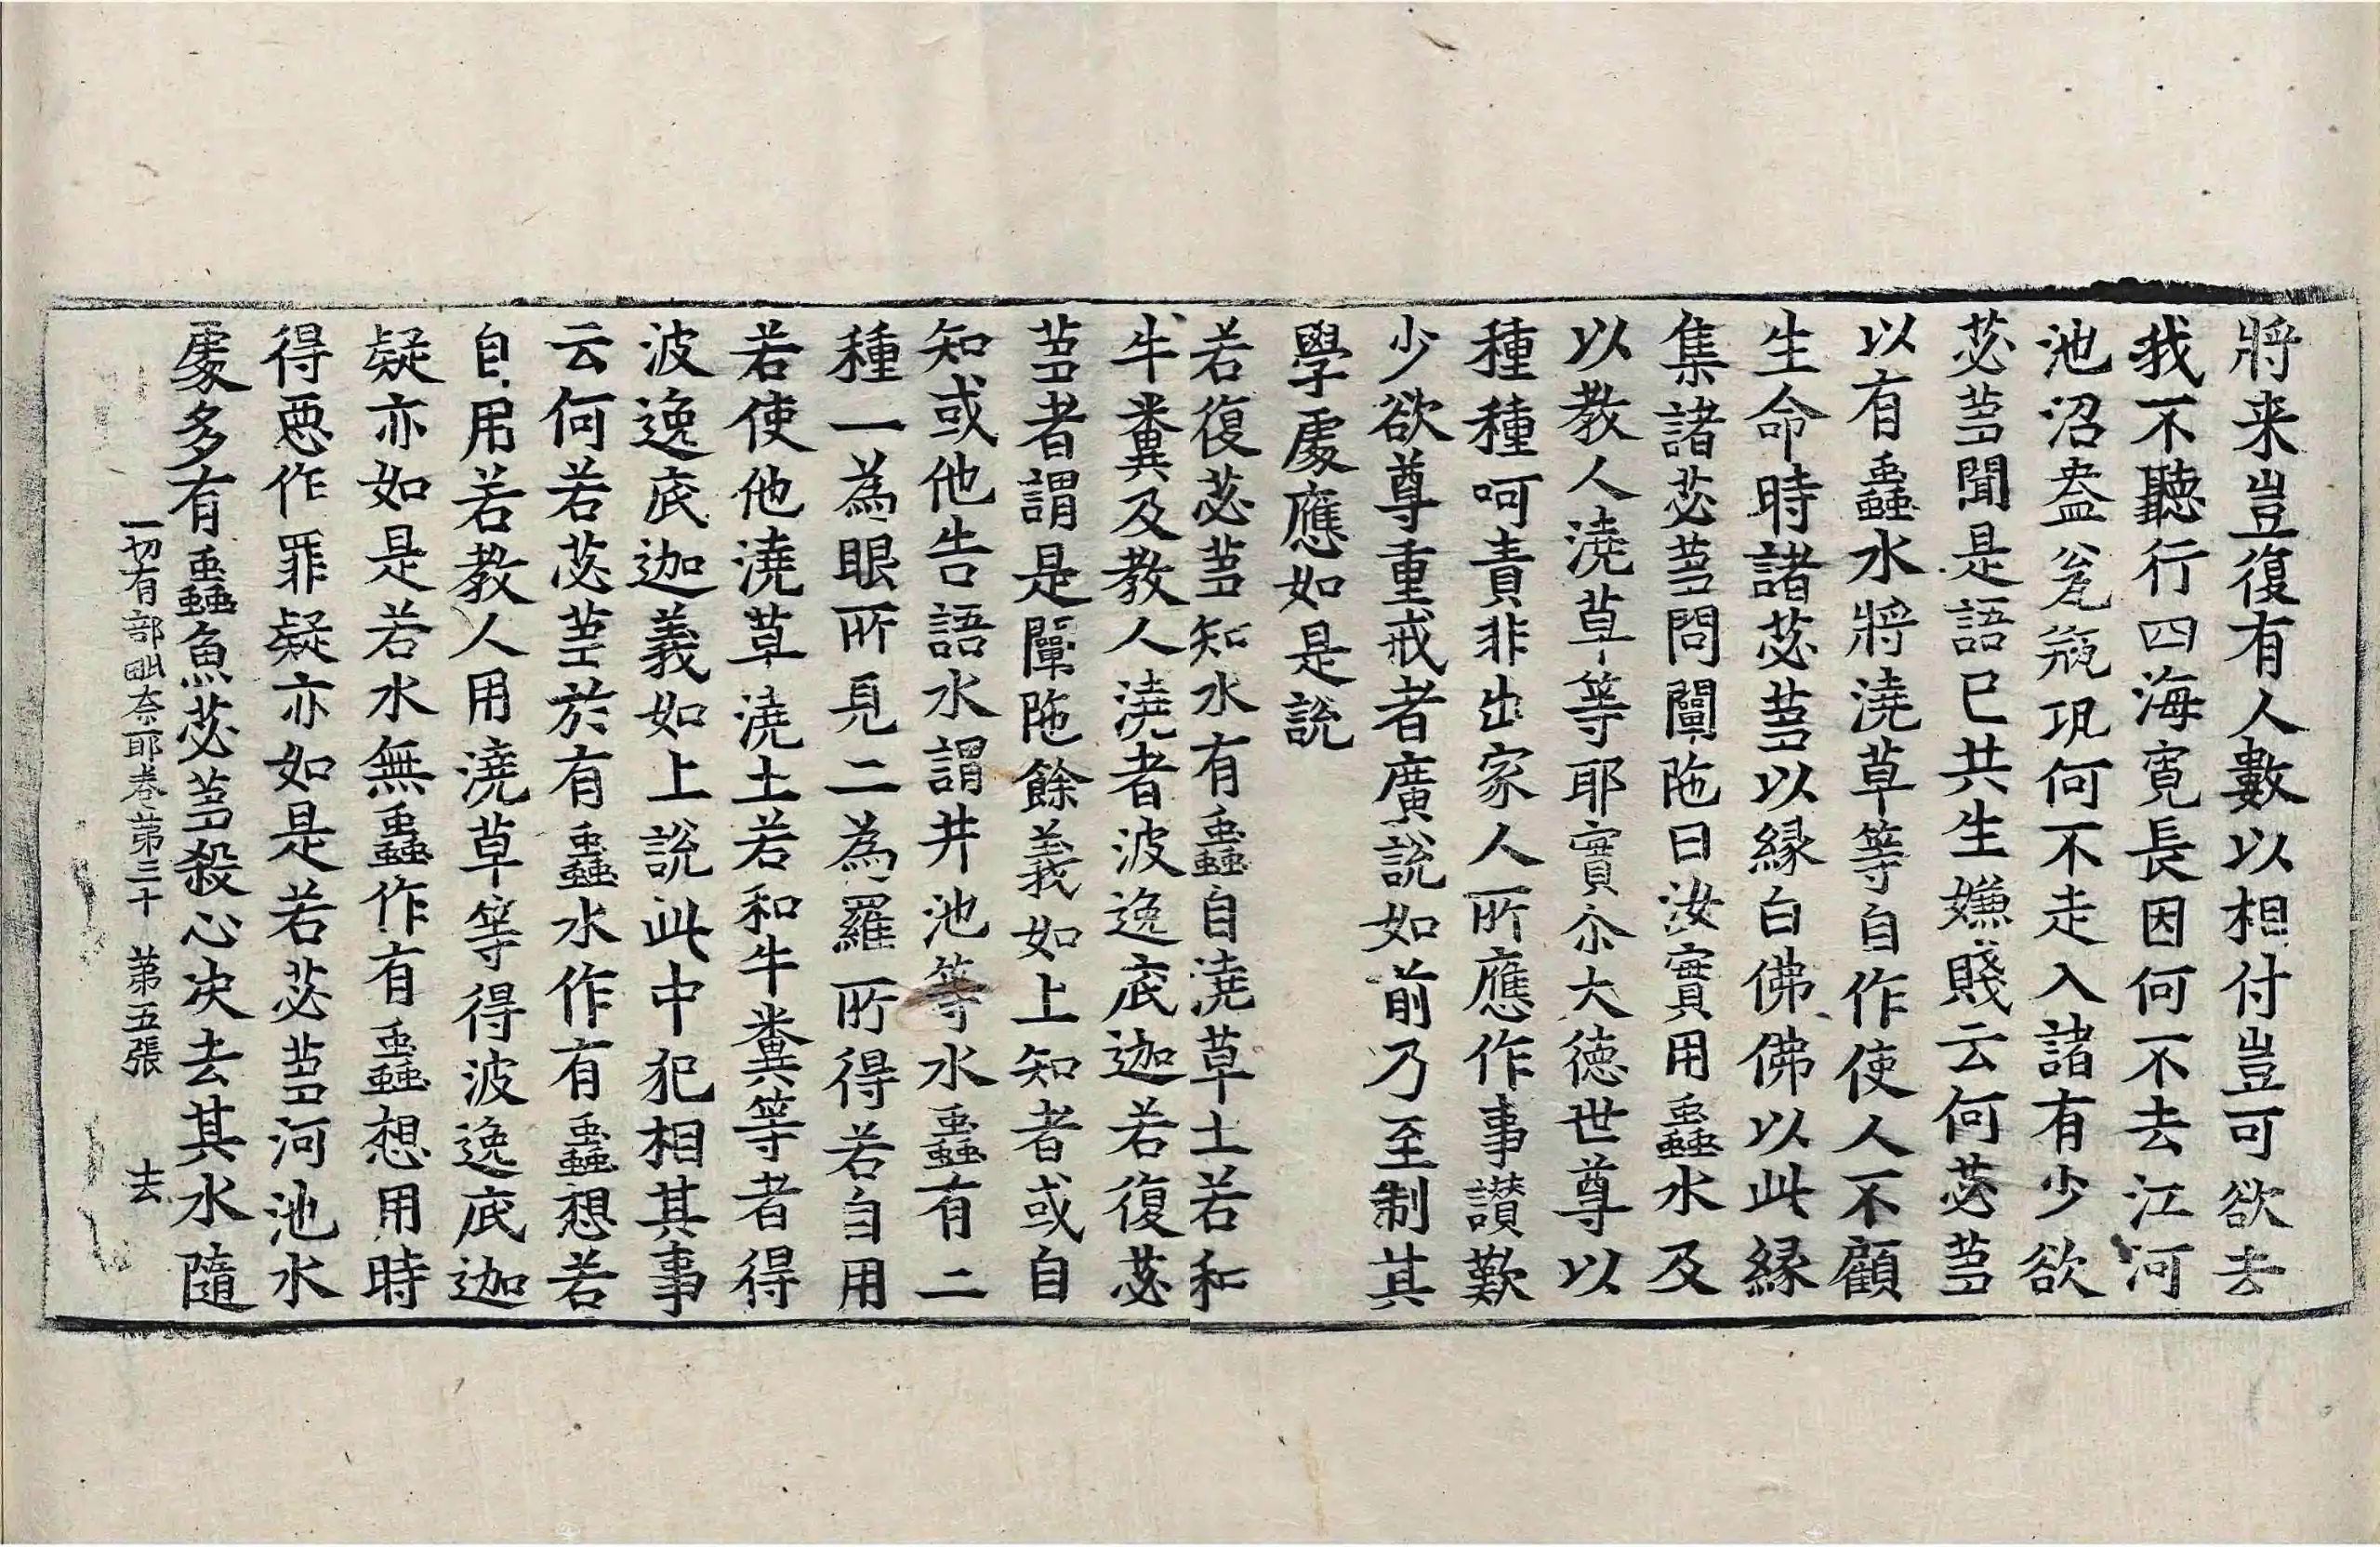 將来豈復有人數以相付豈可欲去
我不聽行四海寬長因何不去江河
池沼盎瓮瓶瓨何不走入諸有少欲
苾蒭聞是語已共生嫌賤云何苾蒭
以有蟲水將澆草等自作使人不顧
生命時諸苾蒭以縁白佛佛以此縁
集諸苾蒭問闡陁曰汝實用蟲水及
以教人澆草等耶實尒大德世尊以
種種呵責非出家人所應作事讃歎
少欲尊重戒者廣說如前乃至制其
學處應如是說
若復苾蒭知水有蟲自澆草土若和
牛糞及教人澆者波逸底迦若復苾
蒭者謂是闡陁餘義如上知者或自
知或他告語水謂井池等水蟲有二
種一為眼所見二為羅所得若自用
若使他澆草澆土若和牛糞等者得
波逸底迦義如上說此中犯相其事
云何若苾蒭於有蟲水作有蟲想若
自用若教人用澆草等得波逸底迦
疑亦如是若水無蟲作有蟲想用時
得惡作罪疑亦如是若苾蒭河池水
處多有蟲魚苾蒭殺心決去其水隨
一切有部毗奈耶卷第三十　第五張　去